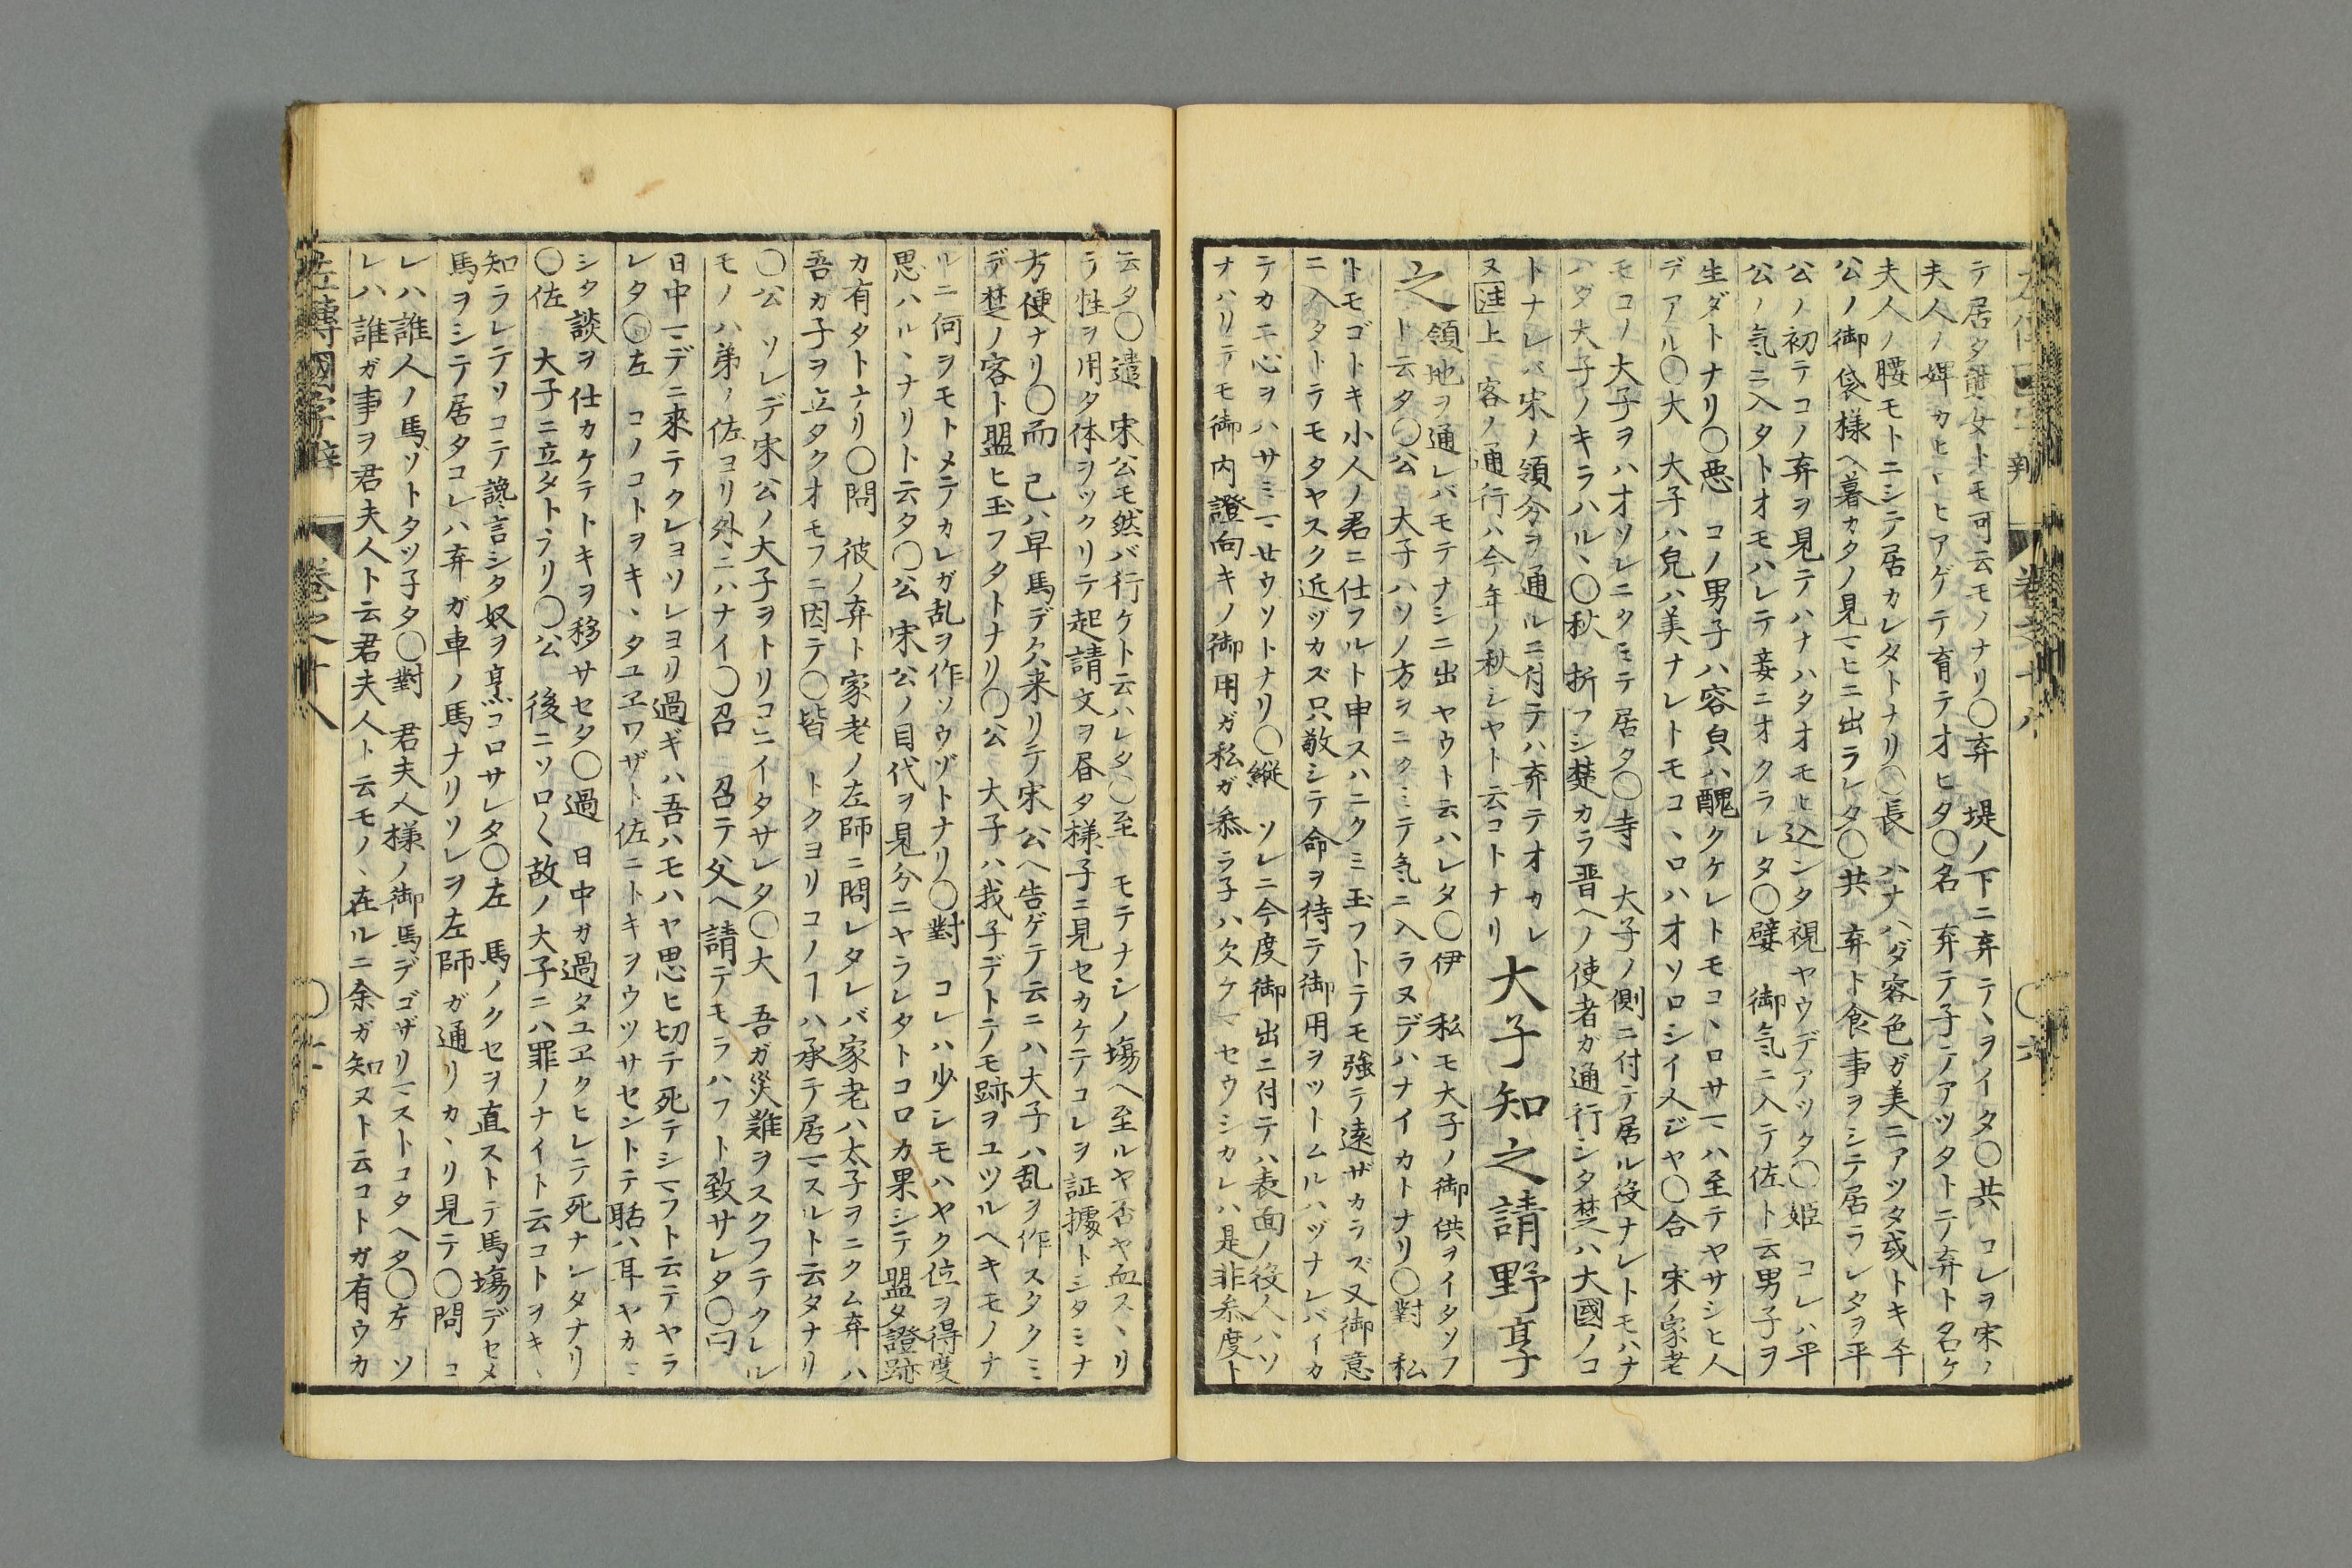 テ居タ 女トモ可云モノナリ〇弃 堤ノ下ニ弃テヽヲイタ〇共 コレヲ宋ノ
夫人ノ婢カヒヽヒアゲテ育テオヒタ〇名 弃テ子テアツタトテ弃ト名ケ
夫人ノ腰モトニシテ居カレタトナリ〇長 ハナハダ容色ガ美ニアツタ或トキ平
公ノ御袋様ヘ暮カタノ見マヒニ出ラレタ〇共 弃ト食事ヲシテ居ラレタヲ平
公ノ初テコノ弃ヲ見テハナハタオモヒ込ンタ視ヤウデアツタ〇姫 コレハ平
公ノ気ニ入タトオモハレテ妾ニオクラレタ〇嬖 御気ニ入テ佐ト云男子ヲ
生ダトナリ〇惡 コノ男子ハ容皃ハ醜クケレトモコヽロサマハ至テヤサシヒ人
デアル〇大 大子ハ皃ハ美ナレトモコヽロハオソロシイ人ジヤ〇合 宋ノ家老
モコノ大子ヲハオソレニクミテ居タ〇寺 大子ノ側ニ付テ居ル役ナレトモハナ
ハダ大子ノキラハルヽ〇秋 折フシ楚カラ晋ヘノ使者ガ通行シタ楚ハ大國ノコ
トナレバ宋ノ領分ヲ通ルニ付テハ弃テオカレ
ヌ注上ラ客ノ通行ハ今年ノ秋シヤト云コトナリ
大子知之請野享
之
領地ヲ通レバモテナシニ出ヤウト云ハレタ〇伊 私モ大子ノ御供ヲイタソフ
ト云タ〇公 大子ハソノ方ヲニクミテ気ニ入ラヌデハナイカトナリ〇對 私
トモゴトキ小人ノ君ニ仕フルト申スハニクミ玉フトテモ強テ遠ザカラズ又御意
ニ入タトテモタヤスク近ヅカズ只敬シテ命ヲ待テ御用ヲツトムルハヅナレバイカ
テカ二心ヲハサミマセウソトナリ〇縦 ソレニ今度御出ニ付テハ表面ノ役人ハソ
ナハリテモ御内證向キノ御用ガ私ガ参ラ子ハ欠ケマセウシカレハ是非参度ト
云タ〇遣 宋公モ然バ行ケト云ハレタ〇至 モテナシノ塲ヘ至ルヤ否ヤ血スヽリ
ラ性ヲ用タ体ヲツクリテ起請文ヲ昏タ様子ニ見セカケテコレヲ証據トシタミナ
方便ナリ〇而 己ハ早馬デ欠来リテ宋公ヘ告ゲテ云ニハ大子ハ乱ヲ作スタクミ
デ楚ノ客ト盟ヒ玉フタトナリ〇公 大子ハ我子デトテモ跡ヲユツルヘキモノナ
ルニ何ヲモトメテカレガ乱ヲ作ソウゾトナリ〇對 コレハ少シモハヤク位ヲ得度
思ハルヽナリト云タ〇公 宋公ノ目代ヲ見分ニヤラレタトコロカ果シテ盟タ證跡
カ有タトナリ〇問 彼ノ弃ト家老ノ左師ニ問レタレバ家老ハ太子ヲニクム弃ハ
吾カ子ヲ立タクオモフニ因テ〇皆 トクヨリコノヿハ承テ居マスルト云タナリ
〇公 ソレデ宋公ノ大子ヲトリコニイタサレタ〇大 吾ガ災難ヲスクフテクレル
モノハ弟ノ佐ヨリ外ニハナイ〇召 召テ父ヘ請テモラハフト致サレタ〇曰
日中マデニ來テクレヨソレヨリ過ギハ吾ハモハヤ思ヒ切テ死テシマフト云テヤラ
レタ〇左 コノコトヲキヽタユヱワザト佐ニトキヲウツサセントテ聒ハ耳ヤカマ
シク談ヲ仕カケテトキヲ移サセタ〇過 日中ガ過タユヱクヒレテ死ナレタナリ
〇佐 大子ニ立タトナリ〇公 後ニソロ〱故ノ大子ニハ罪ノナイト云コトヲキヽ
知ラレテソコテ讒言シタ奴ヲ烹コロサレタ〇左 馬ノクセヲ直ストテ馬塲デセメ
馬ヲシテ居タコレハ弃ガ車ノ馬ナリソレヲ左師ガ通リカヽリ見テ〇問 コ
レハ誰人ノ馬ゾトタツ子タ〇對 君夫人様ノ御馬デゴザリマストコタヘタ〇左 ソ
レハ誰ガ事ヲ君夫人ト云君夫人ト云モノヽ在ルニ余ガ知ヌト云コトガ有ウカ
左傳國字辯 巻之十八